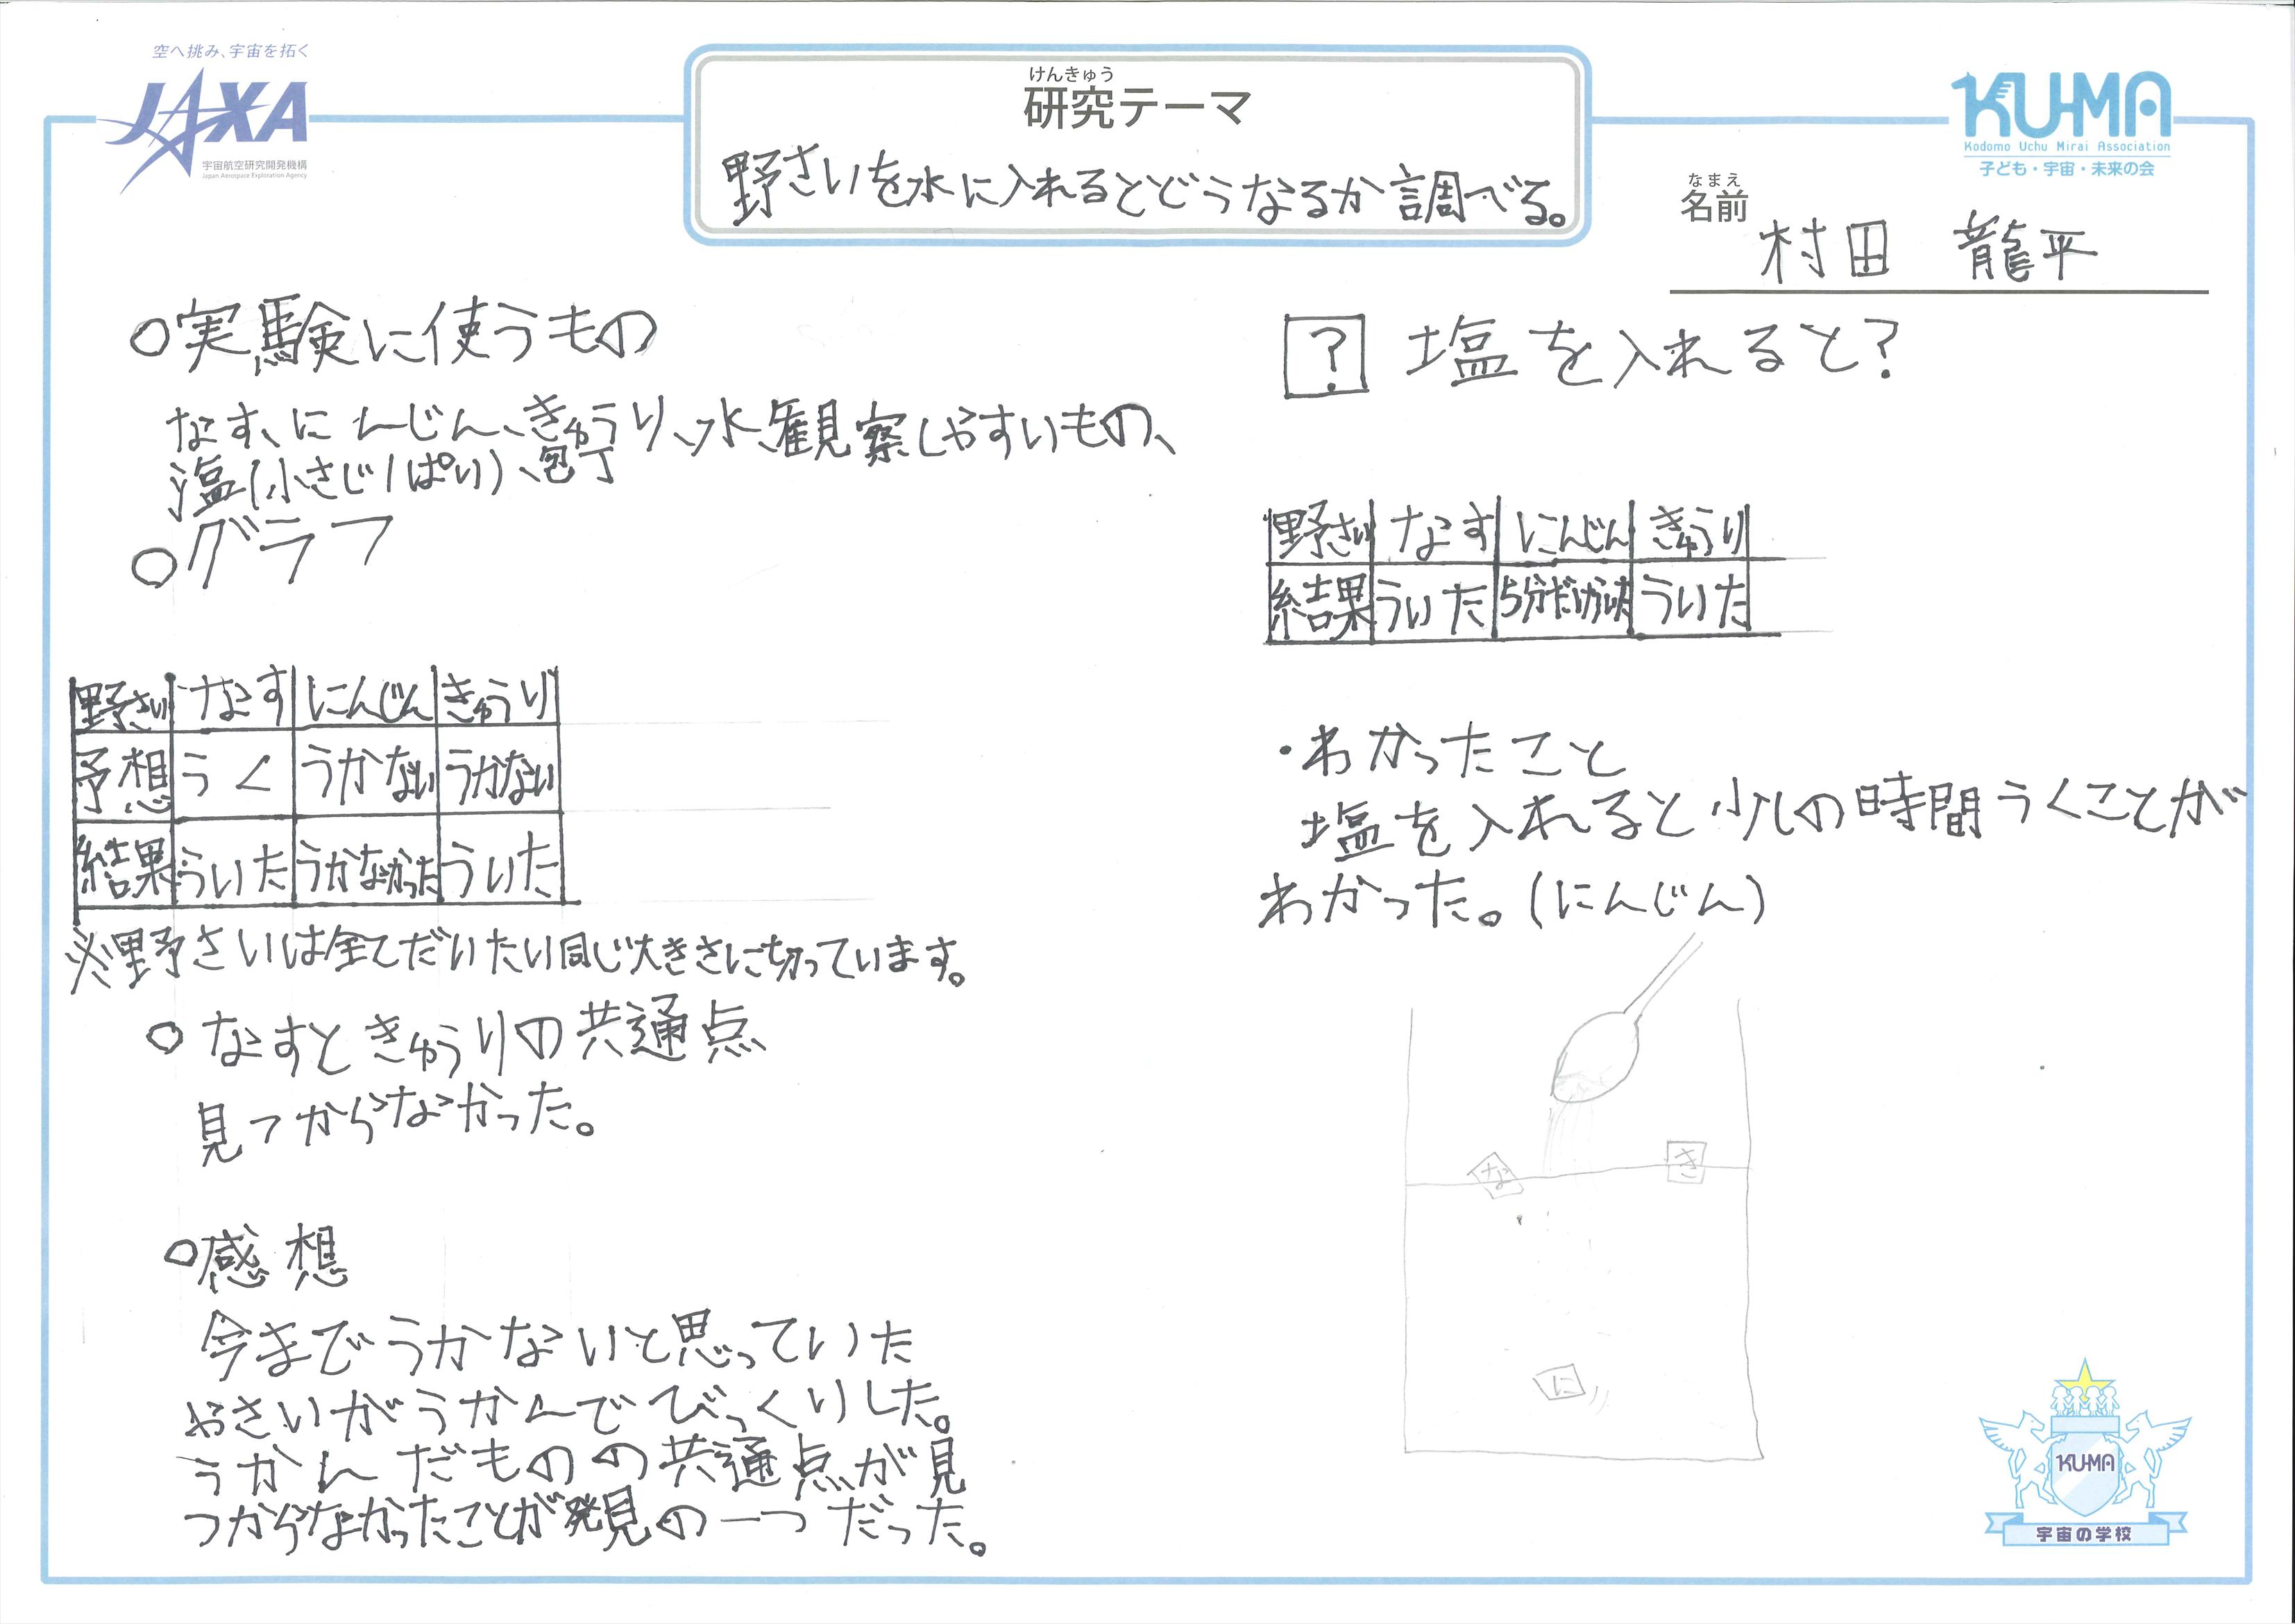 空へ挑み、宇宙を拓く
JAXA
宇宙航空研究開発機構
Japan Aerospace Exploration Agency
けんきゅう
研究テーマ
野さいを水に入れるとどうなるか調べる。
KU-MA
Kodomo Uchu Mirai Association
子ども・宇宙・未来の会
なまえ
名前
村田 龍平
○実験に使うもの
なす、にんじん、きゅうり、水、観察しやすいもの、
塩(小さじ1ぱい)、包丁
○グラフ
野さい なす にんじん きゅうり
予想 うく うかない うかない
結果 ういた うかなかった ういた
※野さいは全てだいたい同じ大きさに切っています。
○なすときゅうりの共通点
見つからなかった。
○感想
今までうかないと思っていた
やさいがうかんでびっくりした。
うかんだものの共通点が見
つからなかったことが発見の一つだった。
? 塩を入れると?
野さい なす にんじん きゅうり
結果 ういた 5分だけういた ういた
・わかったこと
塩を入れると少しの時間うくことが
わかった。(にんじん)
な
き
に
KU-MA
宇宙の学校